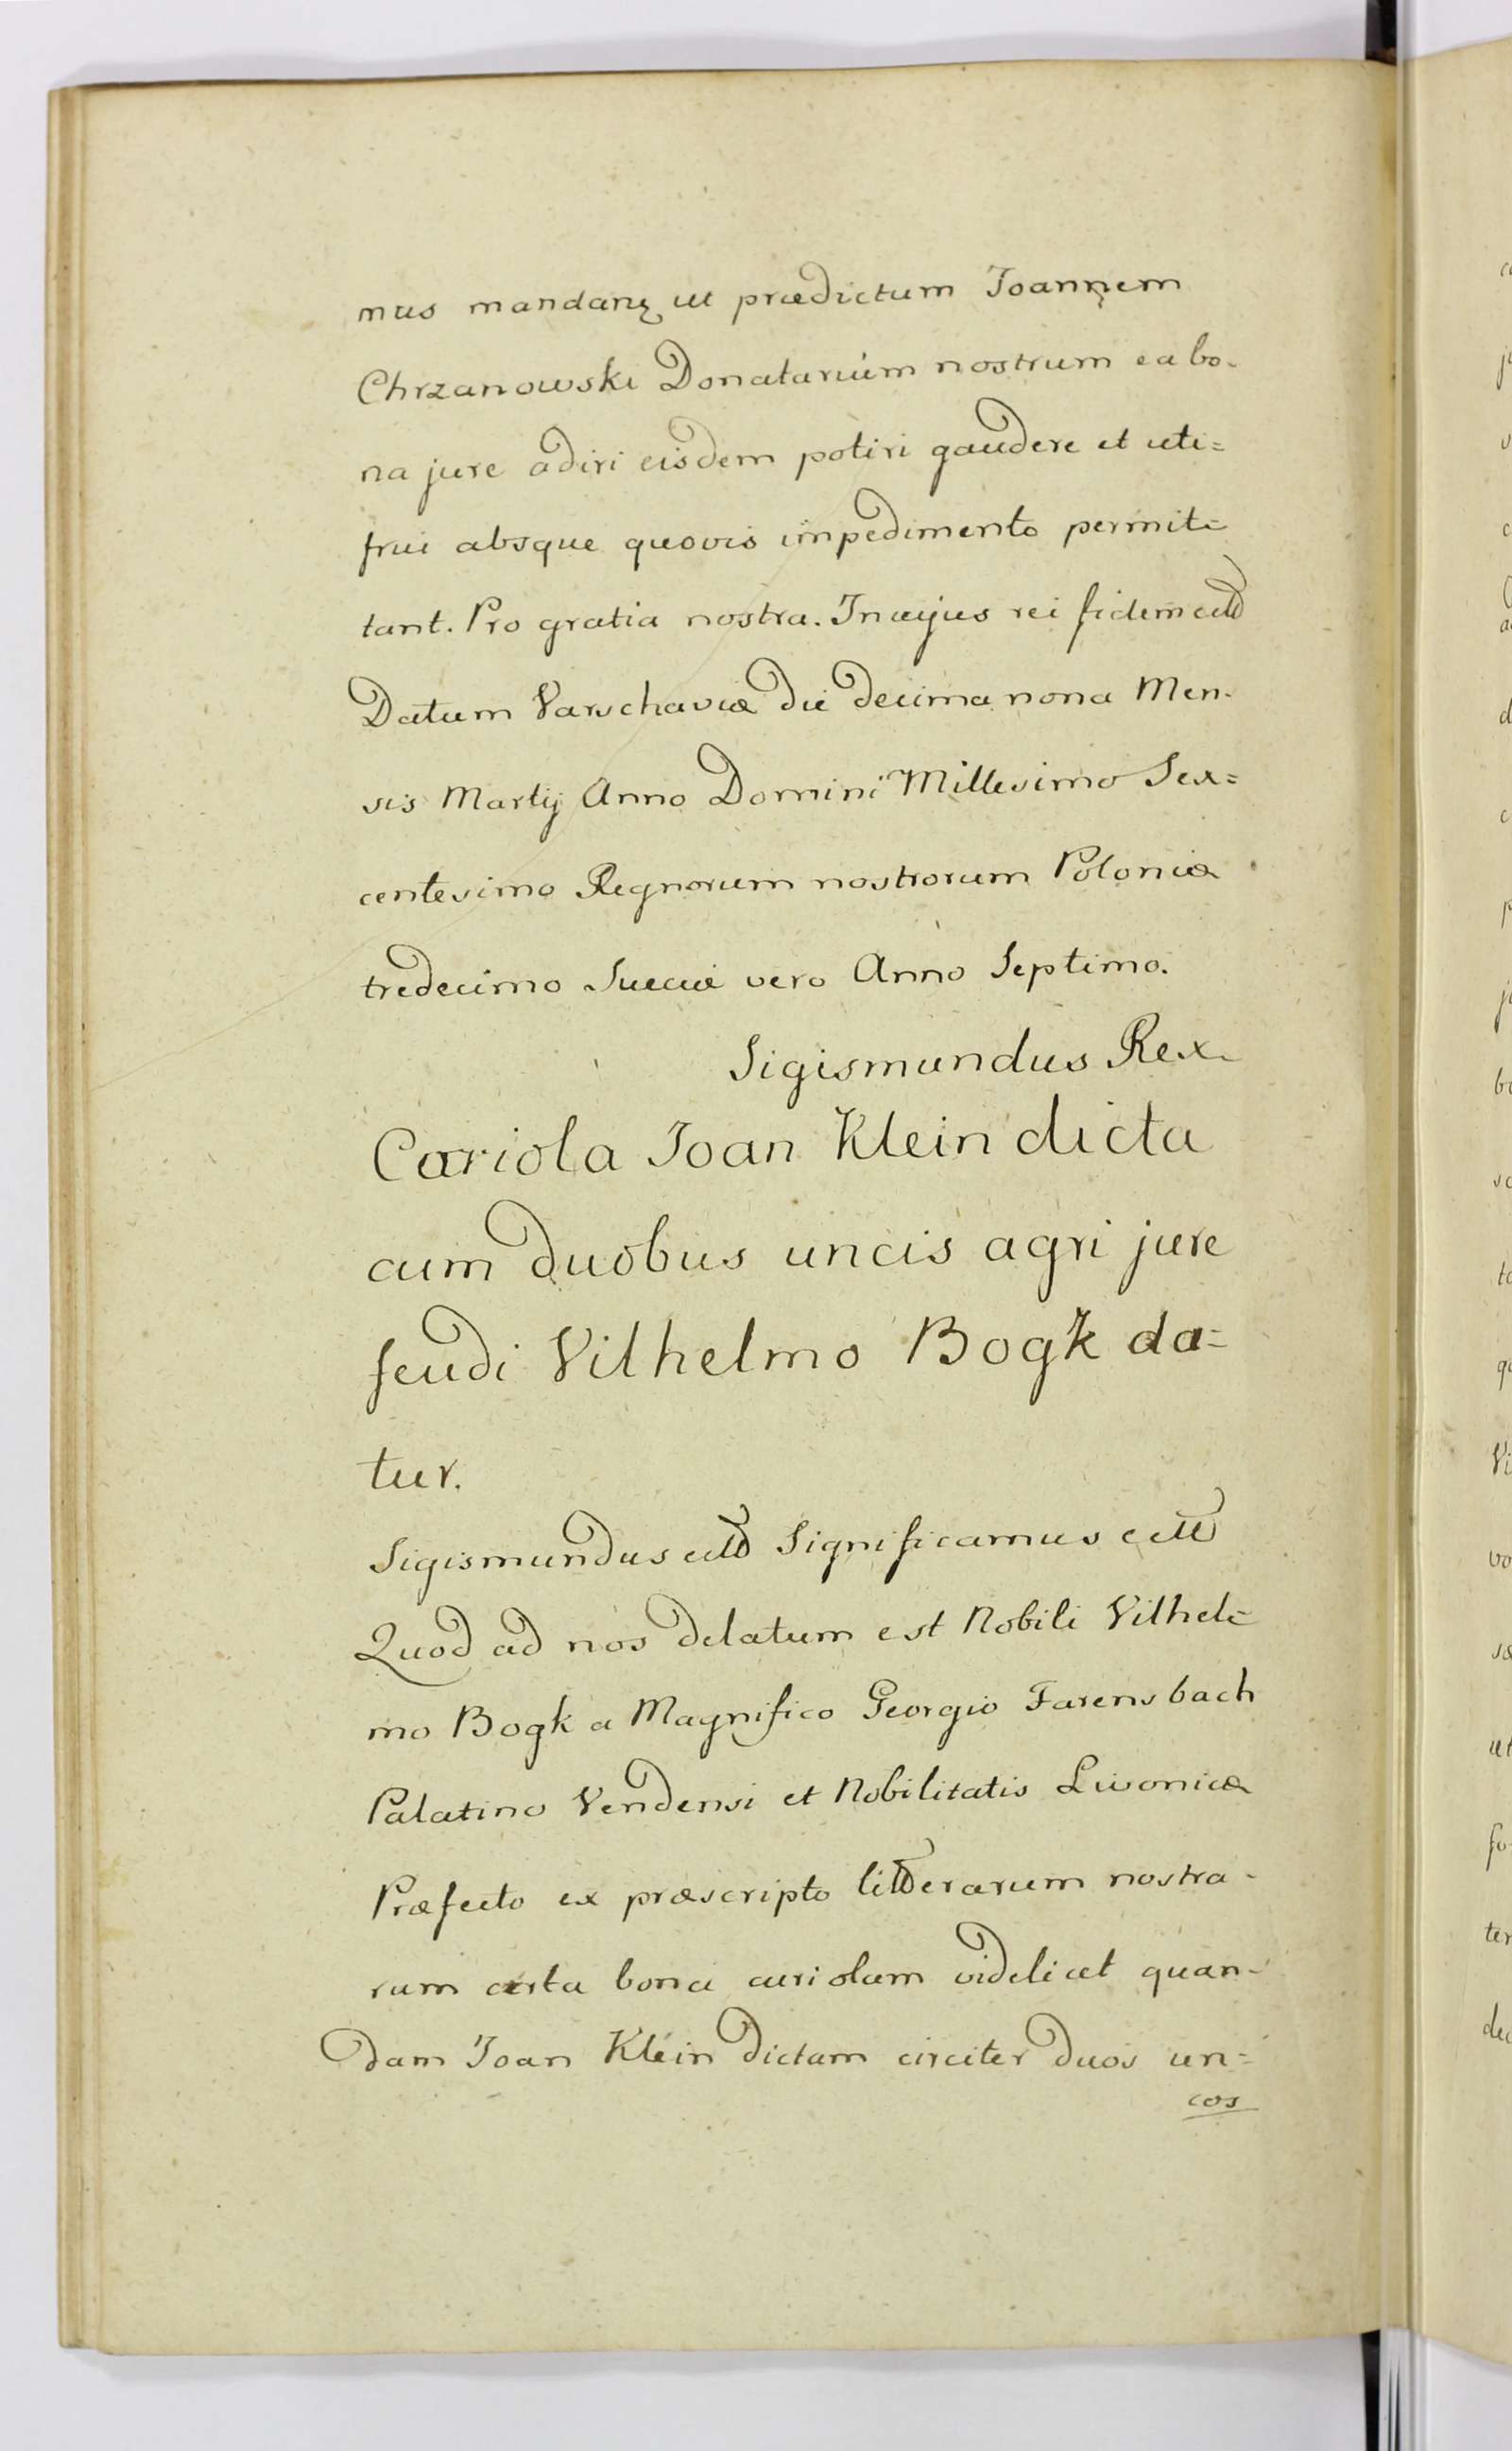 mus mandanꝫ ut prædictum Joannem
Chrzanowski Donatarium nostrum ea bo-
na jure adiri eisdem potiri gaudere et uti=
frui absque quovis impedimento permit=
tant. Pro gratia nostra. In cujus rei fidem ctt
Datum Varschaviæ die decima nona Men-
sis Martij Anno Domini Millesimo Sex=
centesimo Regnorum nostrorum Poloniæ
tredecimo Sueciæ vero Anno Septimo.
Sigismundus Rex
Coriola Joan Klein dicta
cum duobus uncis agri jure
feudi Vilhelmo Bogk da=
tur.
Sigismundus ctt Significamus ctt
Quod ad nos delatum est Nobili Vilhel=
mo Bogk a Magnifico Georgio Farensbach
Palatino Vendensi et Nobilitatis Livonicæ
Præfecto ex præscripto litterarum nostra-
rum certa bona curiolam videlicet quan-
dam Joan Klein dictam circiter duos un=
cos